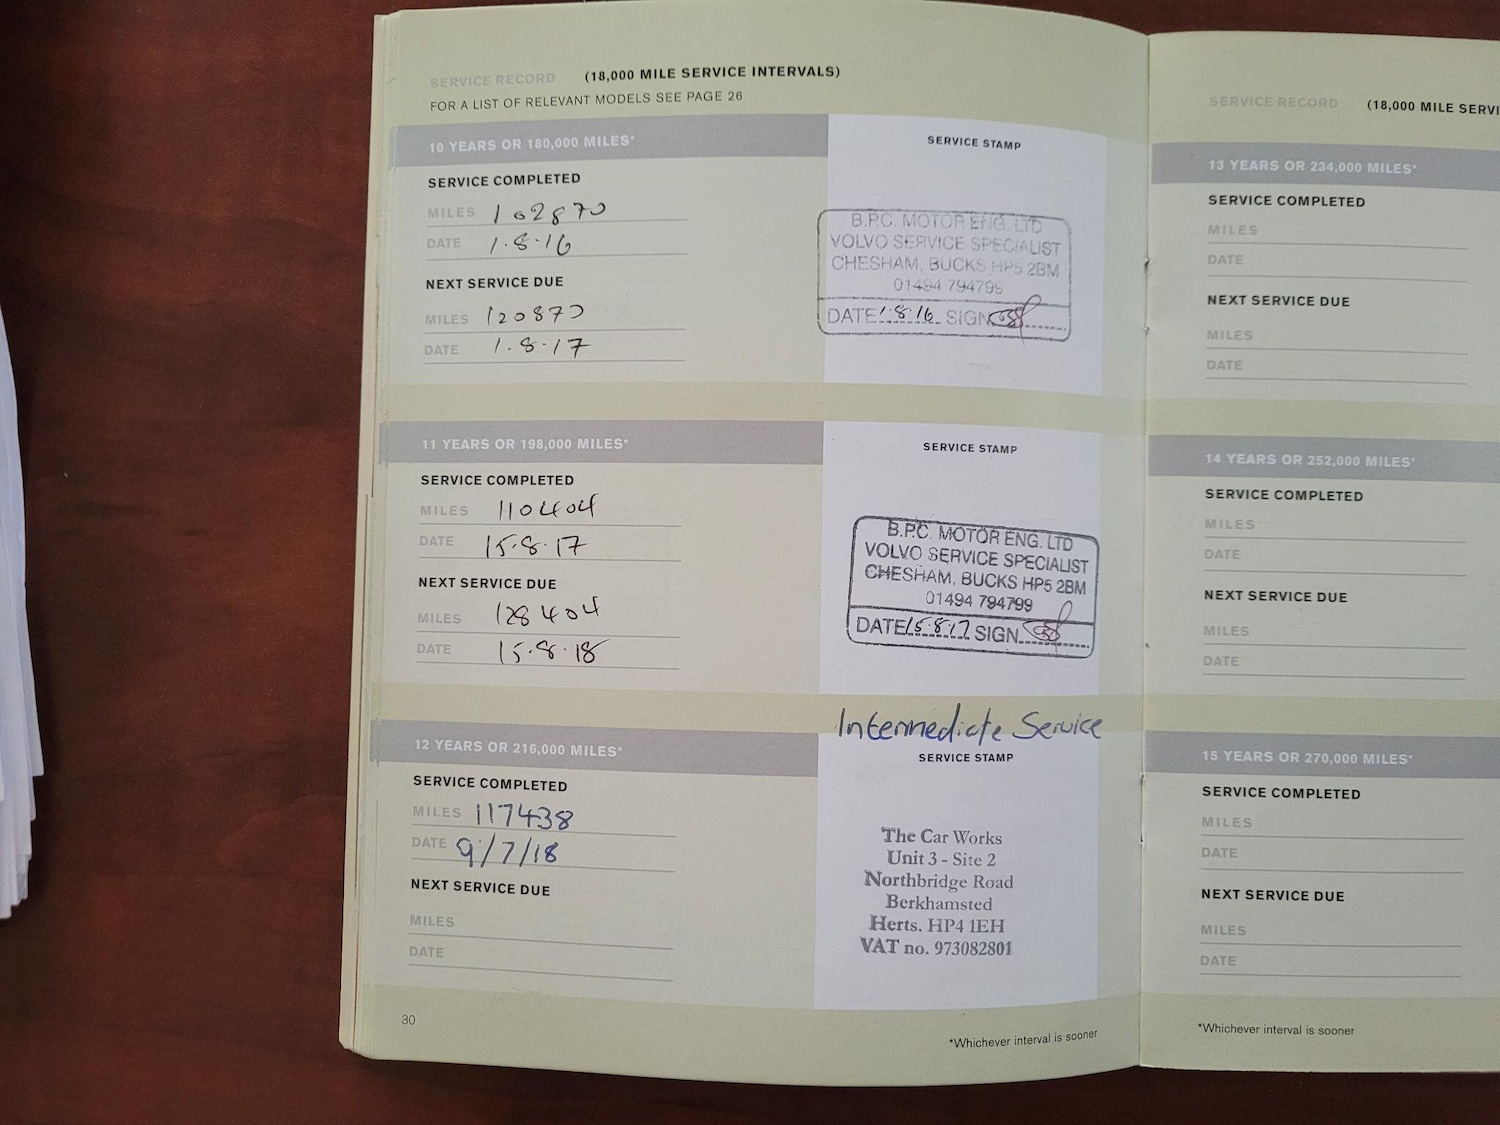 SERVICE RECORD (18,000 MILE SERVICE INTERVALS)
FOR A LIST OF RELEVANT MODELS SEE PAGE 26
10 YEARS OR 180,000 MILES*
SERVICE COMPLETED
MILES 102870
DATE 1.8.16
NEXT SERVICE DUE
MILES 120870
DATE 1.8.17
SERVICE STAMP
B.P.C. MOTOR ENG. LTD
VOLVO SERVICE SPECIALIST
CHESHAM, BUCKS HP5 2BM
01494 794799
DATE 1.8.16 SIGN
11 YEARS OR 198,000 MILES*
SERVICE COMPLETED
MILES 110404
DATE 15.8.17
NEXT SERVICE DUE
MILES 128404
DATE 15.8.18
SERVICE STAMP
B.P.C. MOTOR ENG. LTD
VOLVO SERVICE SPECIALIST
CHESHAM, BUCKS HP5 2BM
01494 794799
DATE 15.8.17 SIGN
12 YEARS OR 216,000 MILES*
SERVICE COMPLETED
MILES 117438
DATE 9/7/18
NEXT SERVICE DUE
MILES
DATE
Intermediate Service
SERVICE STAMP
The Car Works
Unit 3 - Site 2
Northbridge Road
Berkhamsted
Herts. HP4 1EH
VAT no. 973082801
30
*Whichever interval is sooner
SERVICE RECORD (18,000 MILE SERVI
13 YEARS OR 234,000 MILES*
SERVICE COMPLETED
MILES
DATE
NEXT SERVICE DUE
MILES
DATE
14 YEARS OR 252,000 MILES*
SERVICE COMPLETED
MILES
DATE
NEXT SERVICE DUE
MILES
DATE
15 YEARS OR 270,000 MILES*
SERVICE COMPLETED
MILES
DATE
NEXT SERVICE DUE
MILES
DATE
*Whichever interval is sooner